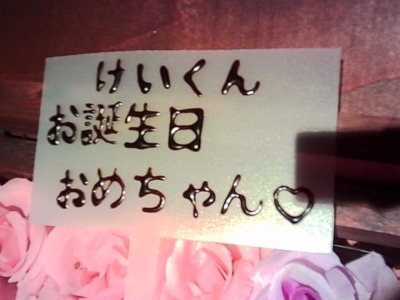 けいくん
お誕生日
おめちゃん♡